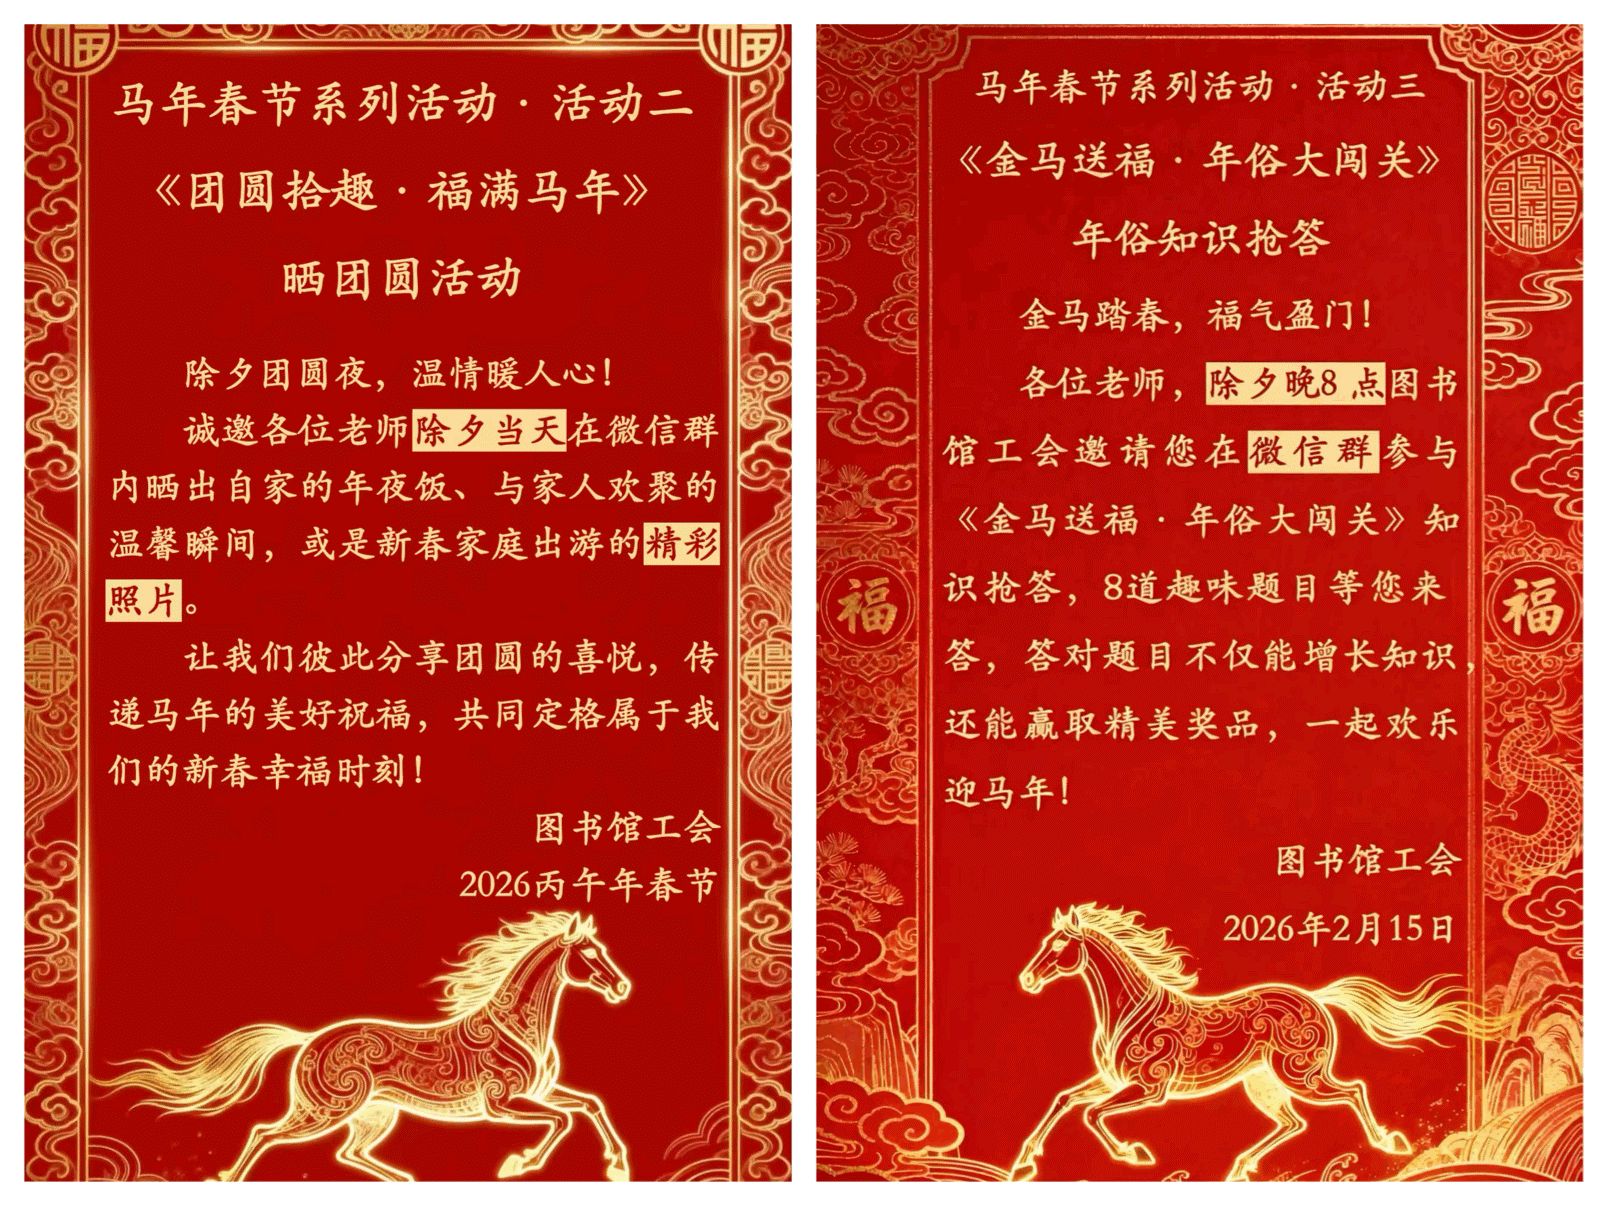 福
福
马年春节系列活动·活动二
《团圆拾趣·福满马年》
晒团圆活动
除夕团圆夜，温情暖人心！
诚邀各位老师除夕当天在微信群
内晒出自家的年夜饭、与家人欢聚的
温馨瞬间，或是新春家庭出游的精彩
照片。
让我们彼此分享团圆的喜悦，传
递马年的美好祝福，共同定格属于我
们的新春幸福时刻！
图书馆工会
2026丙午年春节
马年春节系列活动·活动三
《金马送福·年俗大闯关》
年俗知识抢答
金马踏春，福气盈门！
各位老师，除夕晚8 点图书
馆工会邀请您在微信群参与
《金马送福·年俗大闯关》知
识抢答，8道趣味题目等您来
答，答对题目不仅能增长知识，
还能赢取精美奖品，一起欢乐
迎马年！
图书馆工会
2026年2月15日
福
福